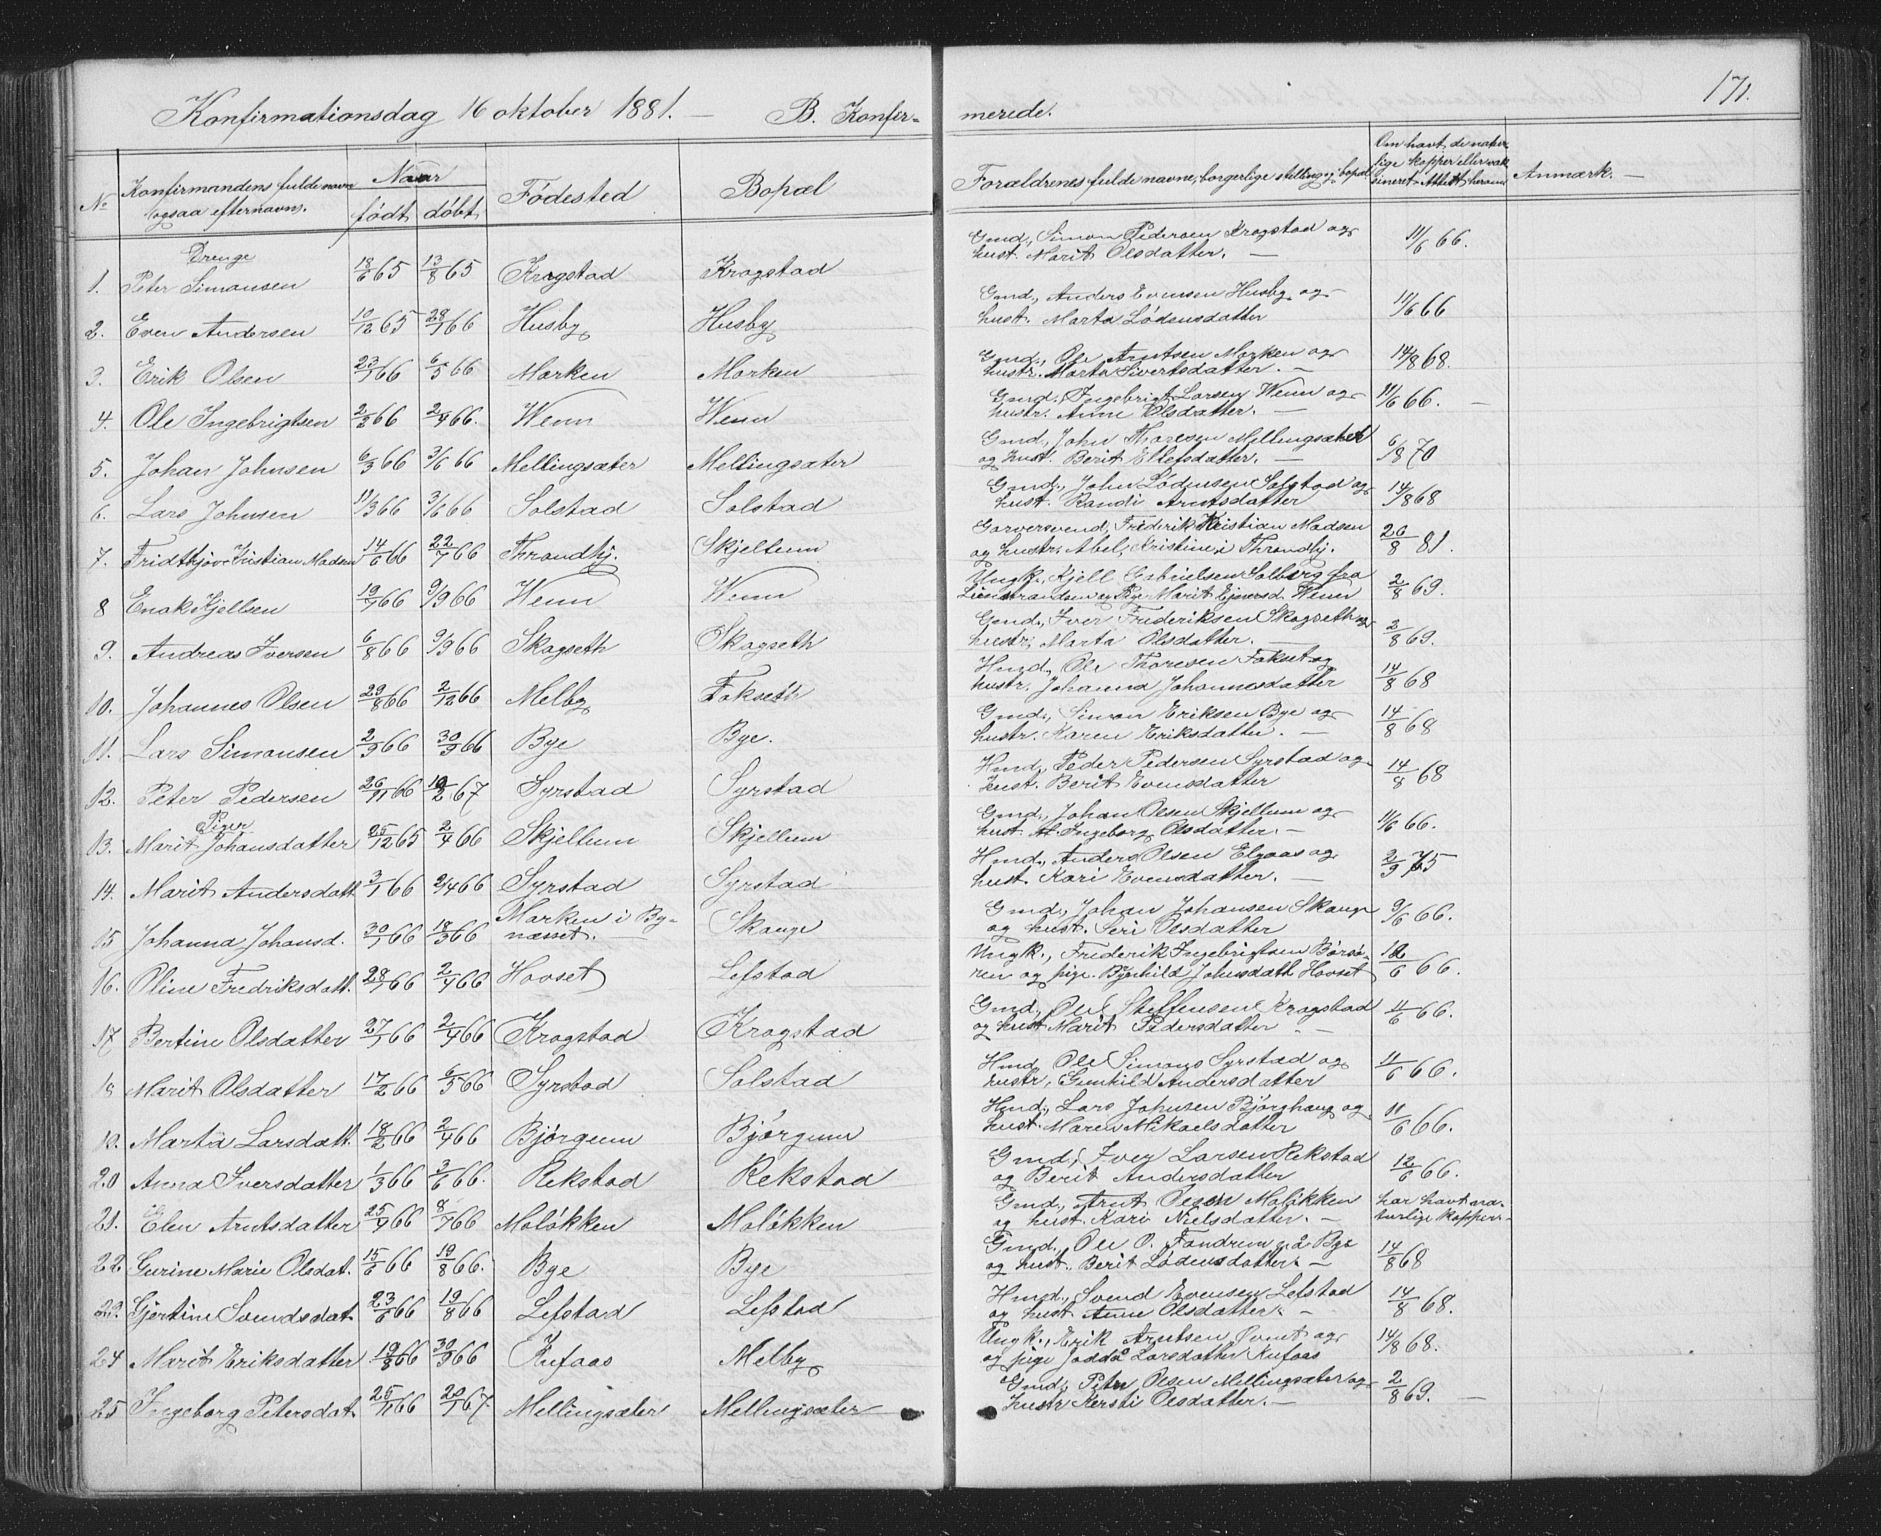 171.
Konfirmationsdag 16 oktober 1881. — B. Konfir-
merede.
No Konfirmandens fulde navn ogsaa efternavn. Naar født døbt Fødested Bopæl
Forældrenes fulde navne, borgerlige stilling og bopæl Om havt de naturlige kopper eller vaksineret. Attest herom Anmærk. —
Drenge
1. Peter Simonsen 18/6 65 13/8 65 Krogstad Krogstad Gmd., Simon Pedersen Krogstad og
hust. Marit Olsdatter. — 11/6 66.
2. Even Andersen 10/12 65 28/1 66 Husby Husby Gmd., Anders Evensen Husby og
hust. Marta Lødensdatter 11/6 66
3. Erik Olsen 23/1 66 6/5 66 Morken Morken Gmd., Ole Arntsen Morken og
hustr. Marta Sivertsdatter. — 14/8 68.
4. Ole Ingebrigtsen 2/3 66 2/4 66. Wenn Wenn Gmd., Ingebrigt Larsen Wenn og
hustr. Anne Olsdatter. — 11/6 66. —
5. Johan Johnsen 6/3 66 3/6 66 Mellingsæter Mellingsæter Gmd., John Thoresen Mellingsæter
og hust. Berit Ellefsdatter. — 6/8 70
6. Lars Johnsen 11/3 66 3/6 66 Solstad Solstad Gmd., John Lodensen Solstad og
hust. Randi Arntsdatter 14/8 68
7. Fridthjov Kristian Madsen 14/6 66 22/7 66 Throndhj. Skjellum Garversvend, Frederik Kristian Madsen
og hustr. Abel Kristine i Throndhj. 26/8 81.
8 Enok Kjellsen 19/7 66 9/9 66 Wenn Wenn Ungk., Kjell Gabrielsen Solberg fra
og Pige Marit Ejnersd. Wenn 2/8 69.
9. Andreas Iversen 6/8 66 9/9 66 Skogseth Skogseth Gmd., Iver Frederiksen Skogseth og
hustr. Marta Olsdatter. — 2/8 69.
10. Johannes Olsen 29/8 66 2/12 66 Melby Fokseth Hmd., Ole Thoresen Fokset og
hustr. Johanna Johannesdatter 14/8 68
11. Lars Simonsen 2/9 66 30/9 66 Bye Bye. Gmd., Simon Eriksen Bye og
hustr. Karen Eriksdatter. — 14/8 68
12. Peter Pedersen 26/11 66 10/2 67 Syrstad Syrstad Hmd., Peder Pedersen Syrstad og
hust. Berit Evensdatter 14/8 68
Piger
13. Marit Johansdatter 25/12 65 2/4 66 Skjellum Skjellum Gmd., Johan Olsen Skjellum og
hust. Ingeborg Olsdatter. — 11/6 66.
14. Marit Andersdatt. 3/1 66 2/4 66 Syrstad Syrstad Hmd., Anders Olsen Elgaas og
hust. Kari Evensdatter. — 2/9 75
15 Johanna Johansd. 30/1 66 18/3 66 Morken i By-
næsset. Skauge Gmd., Johan Johansen Skauge
og hust. Seri Olsdatter 9/6 66.
16. Oline Fredriksdatt. 28/1 66 2/4 66 Hovset Lefstad Ungk., Frederik Ingebrigtsen Børsø-
ren og pige Bynhild Johnsdatt. Hovset 12/6 66.
17 Bertine Olsdatter 27/1 66 2/4 66 Krogstad Krogstad Gmd., Ole Steffensen Krogstad
og hust. Marit Pedersdatter — 11/6 66.
18 Marit Olsdatter 17/2 66 6/5 66 Syrstad Solstad Hmd. Ole Simons. Syrstad og
hustr. Gunhild Andersdatter 11/6 66.
19. Marta Larsdatt. 18/2 66 2/4 66 Bjørgum Bjørgum Hmd., Lars Johnsen Bjørghaug og
hust. Maren Mikaelsdatter 11/6 66.
20 Anna Iversdatter 1/3 66 3/6 66. Rekstad Rekstad Gmd., Iver Larsen Rekstad
og Berit Andersdatter 12/6 66.
21. Elen Arntsdatter 25/4 66 8/7 66 Moløkken Moløkken Gmd., Arnt Olsen Moløkken
og hust. Kari Nielsdatter. — har havt na-
turlige kopper.
22 Gurine Marie Olsdat. 15/6 66 19/8 66. Bye Bye Gmd., Ole O. Fandrem p. Bye
og hust. Berit Lødensdatter. — 14/8 68
23. Gjertine Svendsdat. 23/6 66 19/8 66 Lefstad Lefstad Hmd., Svend Evensen Lefstad
og hust. Anne Olsdatter. — 14/8 68.
24 Marit Eriksdatter 19/8 66 30/9 66 Kufaas Melby Ungk., Erik Arntsen Øvnt og
og pige Larsdatter Kufaas 14/8 68.
25 Ingeborg Petersdat. 25/11 66 20/1 67 Mellingsæter Mellingsæter Gmd., Peter Olsen Mellingsæter og
hustr. Kersti Olsdatter. — 2/8 69. —